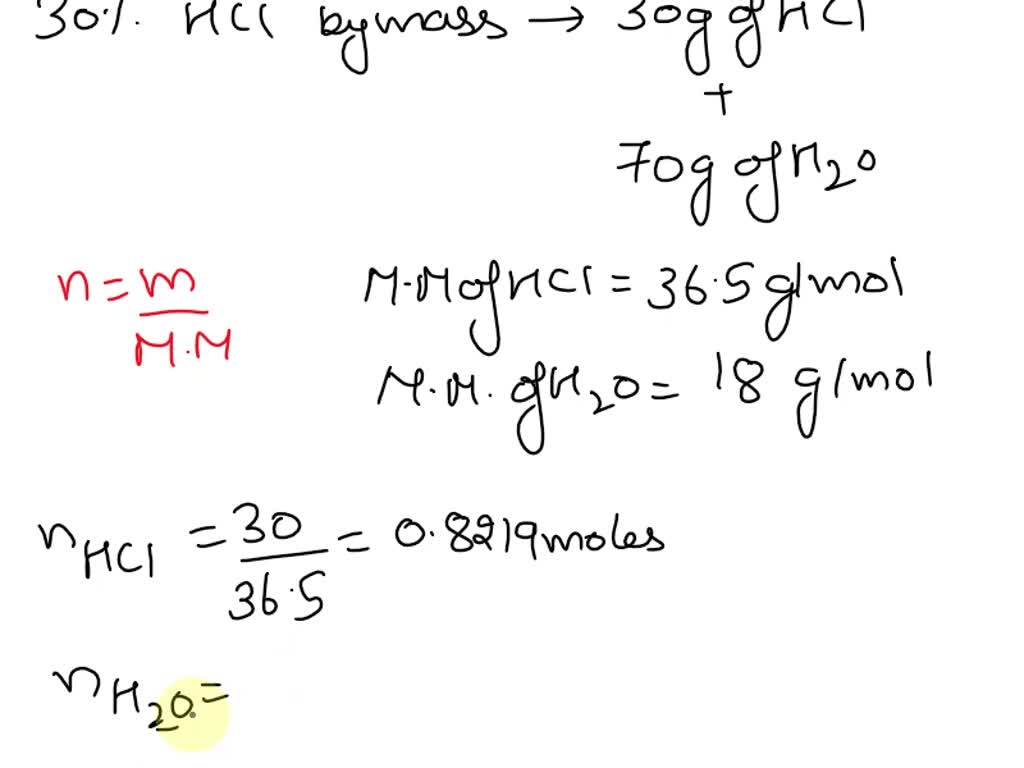 30%. HCl by mass → 30g of HCl
+
70g of H2O
n = m / M.M
M.M of HCl = 36.5 g/mol
M.M. of H2O = 18 g/mol
nHCl = 30 / 36.5 = 0.8219 moles
nH2O =